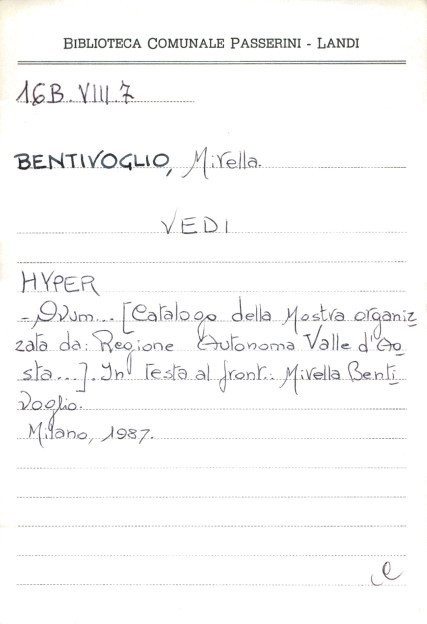 BIBLIOTECA COMUNALE PASSERINI - LANDI
16B.VIII.7
BENTIVOGLIO, Mirella.
VEDI
HYPER
-Ovum... [Catalogo della Mostra organiz
zata da: Regione Autonoma Valle d'Ao
sta...]. In testa al front.: Mirella Benti
voglio.
Milano, 1987.
e